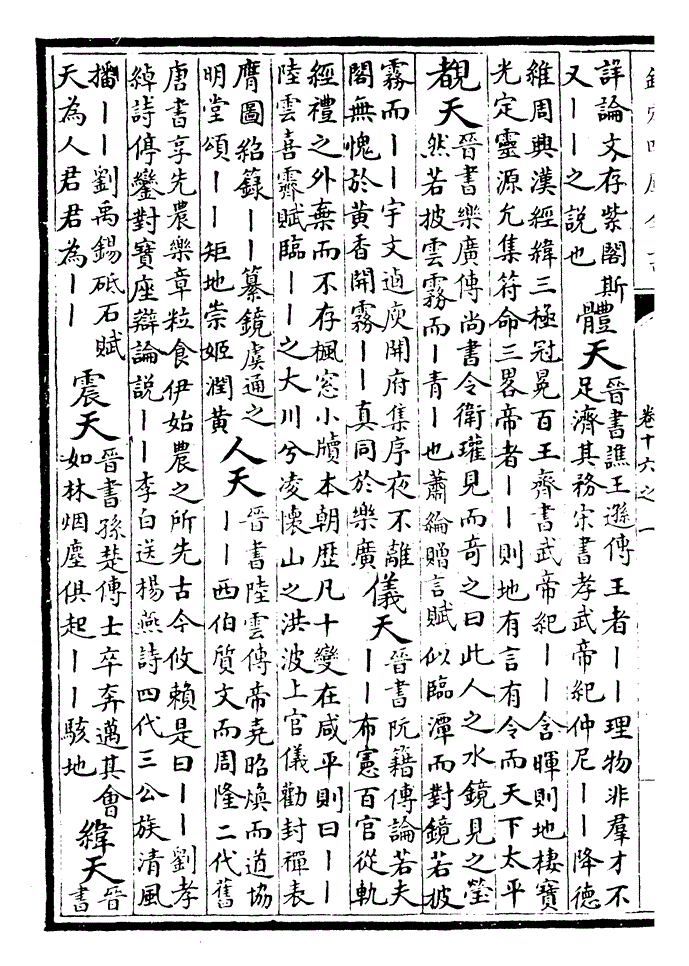 欽定四庫全書
卷十六之一
詳論文存紫閣斯
又丨丨之說也
體天
晉書譙王遜傳王者丨丨理物非羣才不
足濟其務宋書孝武帝紀仲尼丨丨降德
維周興漢經緯三極冠冕百王齊書武帝紀丨丨含暉則地棲寶
光定靈源允集符命三畧帝者丨丨則地有言有令而天下太平
覩天
晉書樂廣傳尚書令衛瓘見而奇之曰此人之水鏡見之瑩
然若披雲霧而丨青丨也蕭綸贈言賦似臨潭而對鏡若披
霧而丨丨宇文逌庾開府集序夜不離
閣無愧於黃香開霧丨丨真同於樂廣
儀天
晉書阮籍傳論若夫
丨丨布憲百官從軌
經禮之外棄而不存楓窓小牘本朝歴凡十變在咸平則曰丨丨
陸雲喜霽賦臨丨丨之大川兮凌懷山之洪波上官儀勸封禪表
膺圖紹籙丨丨纂鏡虞通之
明堂頌丨丨矩地崇姬潤黃
人天
晉書陸雲傳帝堯昭煥而道協
丨丨西伯質文而周隆二代舊
唐書享先農樂章粒食伊始農之所先古今攸賴是曰丨丨劉孝
綽詩停鑾對寶座辯論説丨丨李白送楊燕詩四代三公族清風
播丨丨劉禹錫砥石賦
天為人君君為丨丨
震天
晉書孫楚傳士卒奔邁其會
如林烟塵俱起丨丨駭地
緯天
晉
書